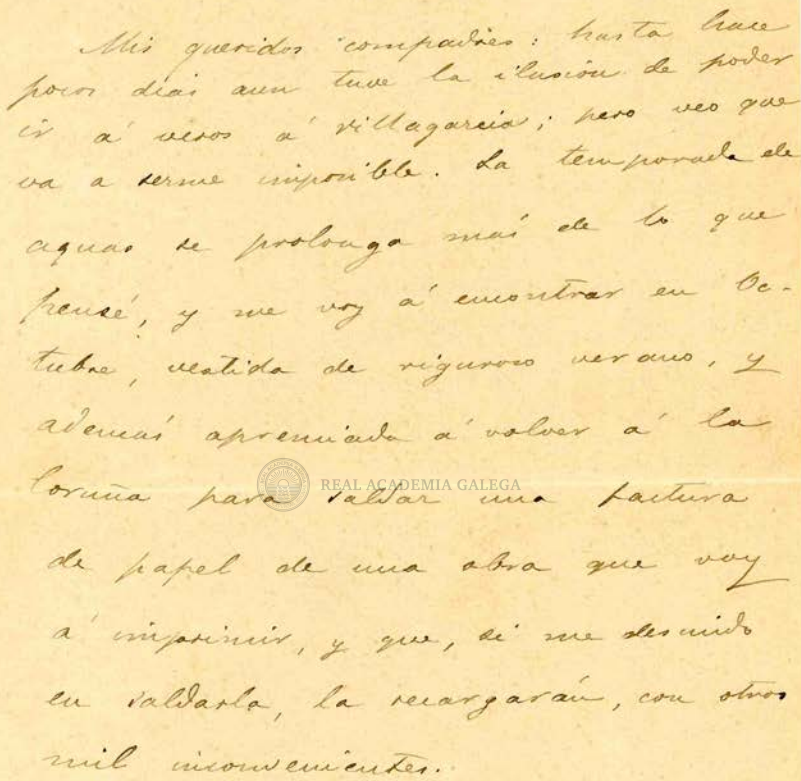 Mis queridos compadres: hasta hace
pocos dias aun tuve la ilusión de poder
ir á veros á Villagarcia; pero veo que
va a serme imposible. La temporada de
aguas se prolonga más de lo que
pensé, y me voy á encontrar en Oc-
tubre, vestida de riguroso verano, y
además apremiada á volver á la
Coruña para saldar una factura
de papel de una obra que voy
á imprimir, y que, si me descuido
en saldarla, la recargarán, con otros
mil inconvenientes.
REAL ACADEMIA GALEGA